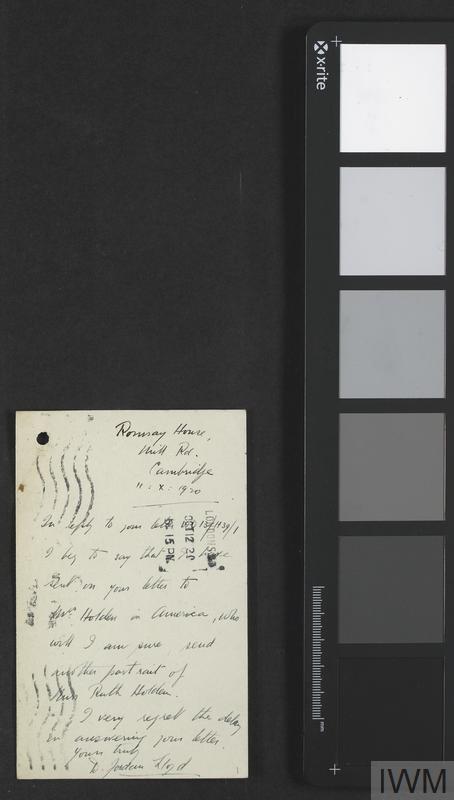 Romsay House,
Mill Rd.
Cambridge
11 : X : 1920
In reply to your letter
I beg to say that I have
sent on your letter to
Mr. Holden in America, who
will I am sure, send
another portrait of
Miss Ruth Holden.
I very regret the delay
in answering your letter.
Yours truly
D. Jordan Lloyd
LONDON S.W.
OCT 12 20
15 PM
x·rite
mm
IWM